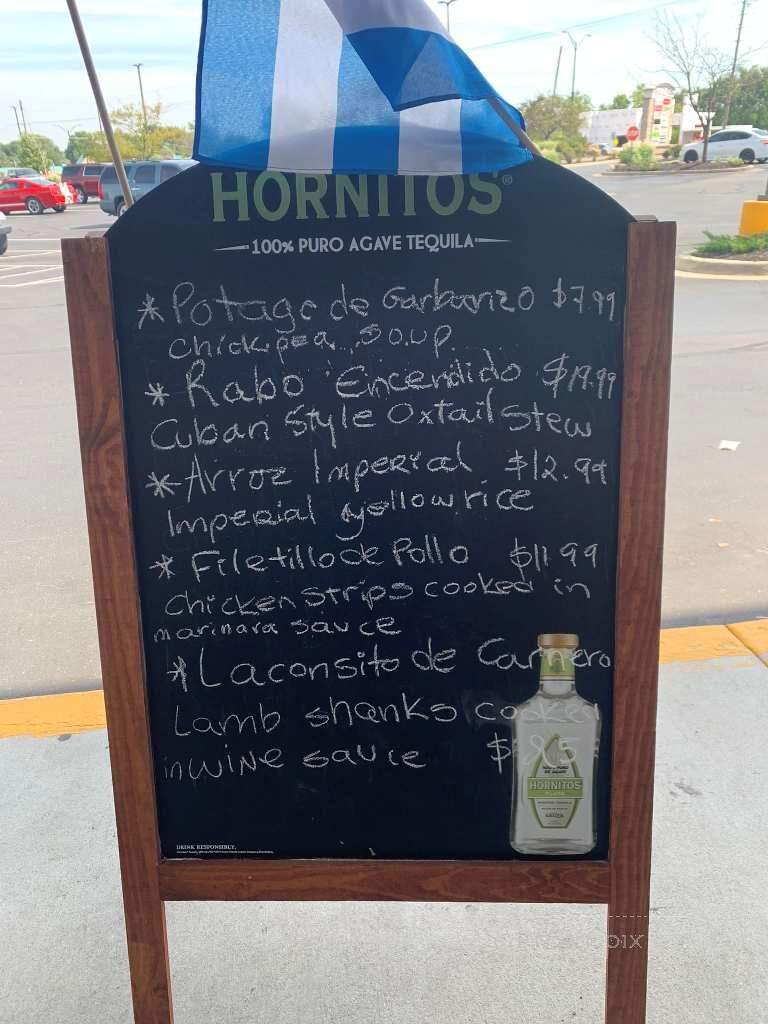 HORNITOS®
100% PURO AGAVE TEQUILA
*Potage de Garbanzo $7.99
Chickpea soup.
*Rabo Encendido $19.99
Cuban Style Oxtail Stew
*Arroz Imperial $12.99
Imperial yellow rice
*Filetillo de Pollo $11.99
Chicken Strips cooked in
marinara sauce
*Laconsito de Carnero
Lamb shanks cooked
in wine sauce $25
HORNITOS
DRINK RESPONSIBLY.